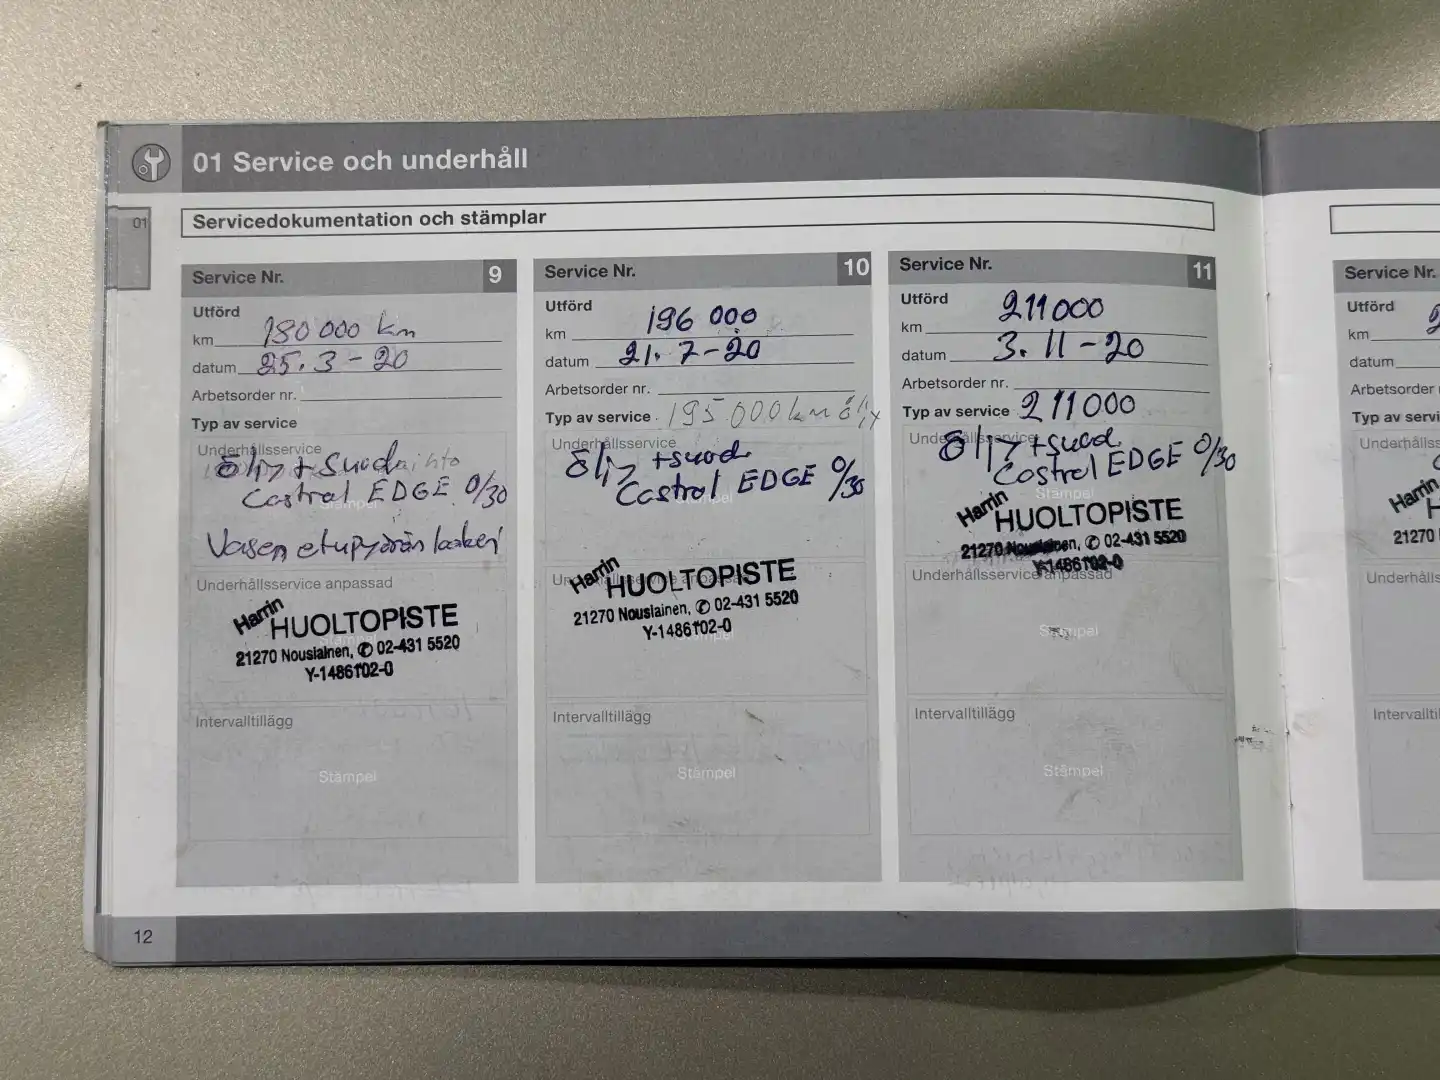 01 Service och underhåll
01
Servicedokumentation och stämplar
Service Nr. 9
Utförd
km 180 000 km
datum 25.3-20
Arbetsorder nr.
Typ av service
Underhållsservice
Öljy + Suod
Castrol EDGE 0/30
Stämpel
Vasen etupyörän laakeri
Underhållsservice anpassad
Harrin
HUOLTOPISTE
21270 Nousiainen, ✆ 02-431 5520
Y-1486102-0
Intervalltillägg
Stämpel
Service Nr. 10
Utförd
km 196 000
datum 21.7-20
Arbetsorder nr.
Typ av service 195.000 km öljy
Underhållsservice
Öljy +suod
Castrol EDGE 0/30
Underhållsservice anpassad
Harrin
HUOLTOPISTE
21270 Nousiainen, ✆ 02-431 5520
Y-1486102-0
Intervalltillägg
Stämpel
Service Nr. 11
Utförd
km 211000
datum 3.11-20
Arbetsorder nr.
Typ av service 211000
Underhållsservice
Öljy +suod
Castrol EDGE 0/30
Stämpel
Harrin
HUOLTOPISTE
21270 Nousiainen, ✆ 02-431 5520
Y-1486102-0
Underhållsservice anpassad
Stämpel
Intervalltillägg
Stämpel
12
Service Nr.
Utförd
km 2
datum
Arbetsorder
Typ av servi
Underhålls
Harrin
H
21270
Underhålls
Intervallti